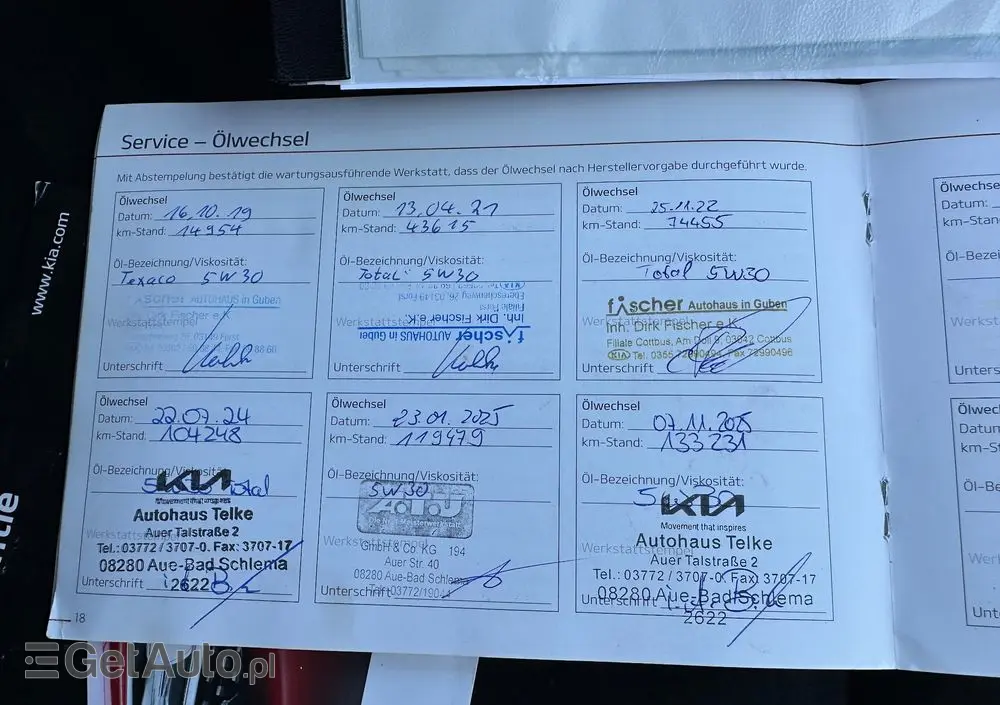 Service – Ölwechsel
Mit Abstempelung bestätigt die wartungsausführende Werkstatt, dass der Ölwechsel nach Herstellervorgabe durchgeführt wurde.
Ölwechsel
Datum: 16.10.19
km-Stand: 14954
Öl-Bezeichnung/Viskosität:
Texaco 5W30
AUTOHAUS in Guben
Dirk Fischer e.K.
Werkstattstempel
Unterschrift
Ölwechsel
Datum: 13.04.21
km-Stand: 43615
Öl-Bezeichnung/Viskosität:
Total 5W30
Werkstattstempel
fischer AUTOHAUS in Guben
Inh. Dirk Fischer e.K.
Filiale Forst
Unterschrift
Ölwechsel
Datum: 25.11.22
km-Stand: 74455
Öl-Bezeichnung/Viskosität:
Total 5W30
fischer Autohaus in Guben
Werkstattstempel
Inh. Dirk Fischer e.K.
Filiale Cottbus, Am Doll 8, 03042 Cottbus
KIA Tel. 0355 72990494, Fax 72990496
Unterschrift
Ölwechsel
Datum: 22.07.24
km-Stand: 104248
Öl-Bezeichnung/Viskosität:
Total
KIA
Movement that inspires
Autohaus Telke
Werkstattstempel
Auer Talstraße 2
Tel.: 03772 / 3707-0. Fax: 3707-17
08280 Aue-Bad Schlema
Unterschrift
2622
Ölwechsel
Datum: 23.01.2025
km-Stand: 119479
Öl-Bezeichnung/Viskosität:
5W30
A.T.U
Die Nr. 1 Meisterwerkstatt
Werkstattstempel
GmbH & Co. KG 194
Auer Str. 40
08280 Aue-Bad Schlema
Unterschrift
Ölwechsel
Datum: 07.11.2025
km-Stand: 133231
Öl-Bezeichnung/Viskosität:
5W30
KIA
Movement that inspires
Autohaus Telke
Werkstattstempel
Auer Talstraße 2
Tel.: 03772 / 3707-0. Fax: 3707-17
08280 Aue-Bad Schlema
Unterschrift
2622
18
Ölwechse
Datum:
km-Stan
Öl-Bezei
Werkst
Unters
Ölwec
Datun
km-S
Öl-B
Wer
Unt
www.kia.com
GetAuto.pl